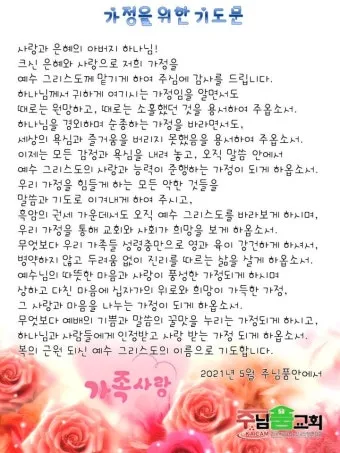 가정을 위한 기도문
사랑과 은혜의 아버지 하나님!
크신 은혜와 사랑으로 저희 가정을
예수 그리스도께 맡기게 하여 주심에 감사를 드립니다.
하나님께서 귀하게 여기시는 가정임을 알면서도
때로는 원망하고, 때로는 소홀했던 것을 용서하여 주옵소서.
하나님을 경외하며 순종하는 가정을 바라면서도,
세상의 욕심과 즐거움을 버리지 못했음을 용서하여 주옵소서.
이제는 모든 감정과 욕심을 내려 놓고, 오직 말씀 안에서
예수 그리스도의 사랑과 능력이 준행하는 가정이 되게 하옵소서.
우리 가정을 힘들게 하는 모든 악한 것들을
말씀과 기도로 이겨내게 하여 주시고,
흑암의 권세 가운데서도 오직 예수 그리스도를 바라보게 하시며,
우리 가정을 통해 교회와 사회가 희망을 보게 하옵소서.
무엇보다 우리 가족들 성령충만으로 영과 육이 강건하게 하셔서,
병약하지 않고 두려움 없이 진리를 따르는 삶을 살게 하옵소서.
예수님의 따뜻한 마음과 사랑이 풍성한 가정되게 하시며
상하고 다친 마음에 십자가의 위로와 희망이 가득한 가정,
그 사랑과 마음을 나누는 가정이 되게 하옵소서.
무엇보다 예배의 기쁨과 말씀의 꿀맛을 누리는 가정되게 하시고,
하나님과 사람들에게 인정받고 사랑 받는 가정 되게 하옵소서.
복의 근원 되신 예수 그리스도의 이름으로 기도합니다.
2021년 5월 주님품안에서
가족사랑
주님품교회